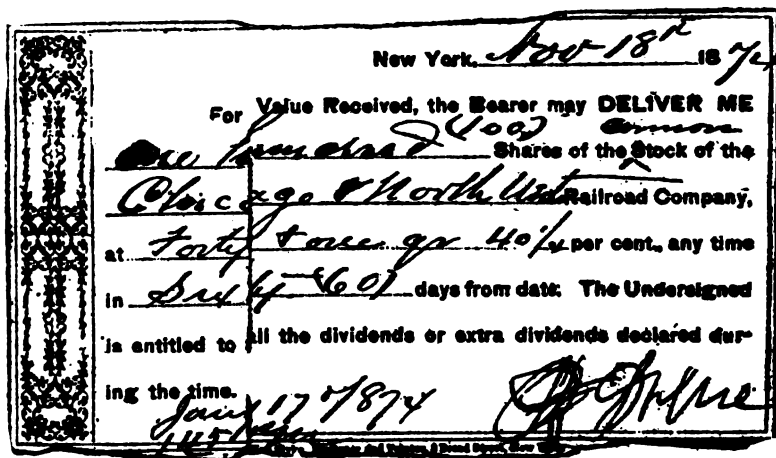 New York, Nov 18th 187
For Value Received, the Bearer may DELIVER ME
One hundred (100) Shares of the common Stock of the
Chicago & North West Railroad Company,
at Forty per cent., any time
in Sixty (60) days from date. The Undersigned
is entitled to all the dividends or extra dividends declared dur-
ing the time.
Jany 17 1874